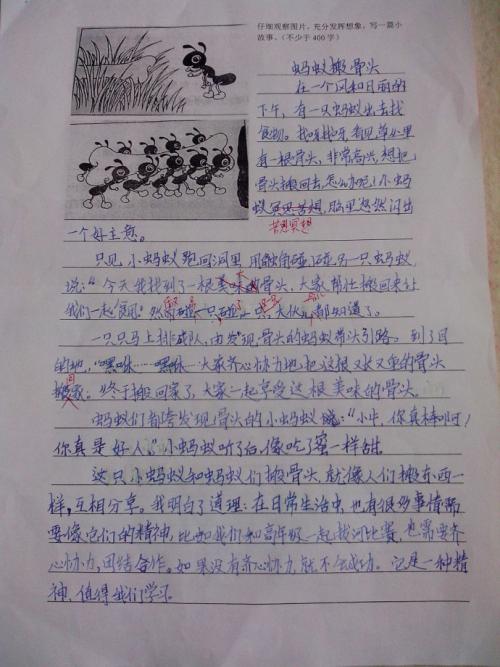 仔细观察图片，充分发挥想象，写一篇小
故事。（不少于400字）
蚂蚁搬骨头
在一个风和日丽的
下午，有一只蚂蚁出去找
食物。找呀找呀看见草丛里
有一根骨头，非常高兴，想把
骨头搬回去，怎么办呢！小蚂
蚁冥思苦想，脑里忽然闪出
苦思冥想
一个好主意。
只见小蚂蚁跑回洞里用触角碰碰另一只蚂蚁
说："今天我找到了一根美味大骨头，大家帮忙搬回来让
我们一起饱 然 碰 一只 一只，大伙儿都知道了。
一只只马上排成队，由发现骨头的蚂蚁带头引路。到了目
的地，"嘿咻……嘿咻……大家齐心协力地把这根又长又重的骨头
搬回家。终于搬回家了，大家一起享受这根美味的骨头。
蚂蚁们都夸发现骨头的小蚂蚁 ："小牛，你真棒啊！
你真是好人。"小蚂蚁听了后，像吃了蜜一样甜。
这只小蚂蚁和蚂蚁们搬骨头，就像人们搬东西一
样，互相分享。我明白了道理：在日常生活中，也有很多事情需
要像它们的精神，比如我们和高年级一起拔河比赛，也需要齐
心协力，团结合作。如果没有齐心协力，就不会成功。它是一种精
神，值得我们学习。